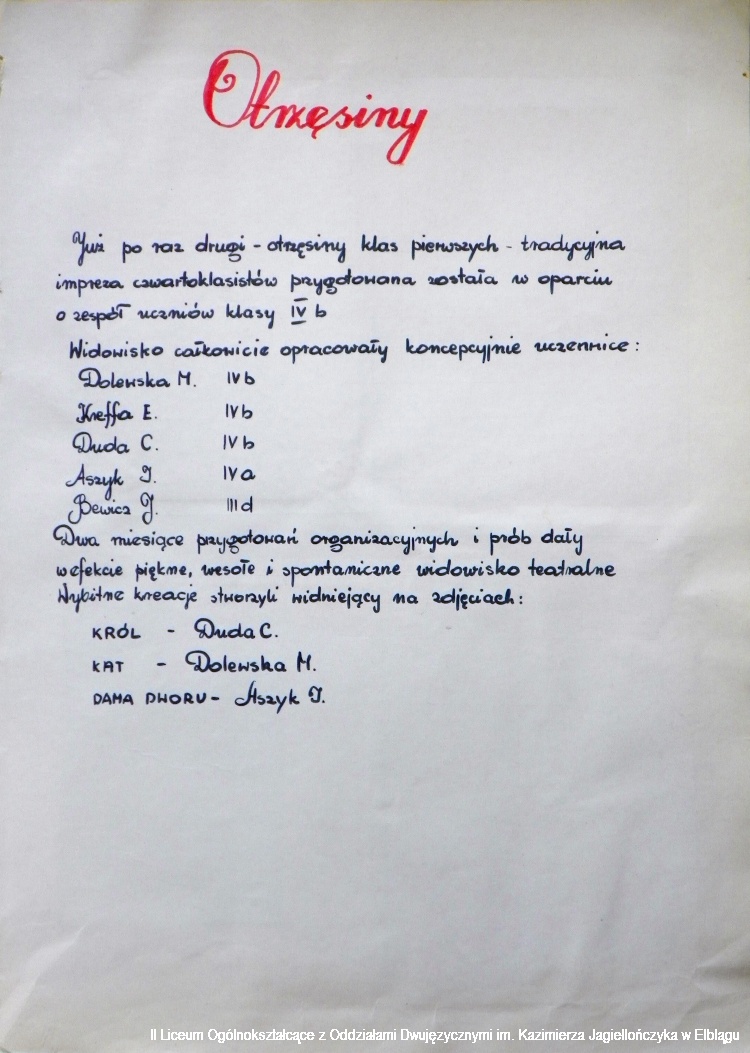 Otrzęsiny
Już po raz drugi - otrzęsiny klas pierwszych - tradycyjna
impreza czwartoklasistów przygotowana została w oparciu
o zespół uczniów klasy IV b
Widowisko całkowicie opracowały koncepcyjnie uczennice:
Dolewska M. IV b
Kreffa E. IV b
Duda C. IV b
Aszyk J. IV a
Bewicz J. III d
Dwa miesiące przygotowań organizacyjnych i prób dały
w efekcie piękne, wesołe i spontaniczne widowisko teatralne
Wybitne kreacje stworzyli widniejący na zdjęciach:
KRÓL - Duda C.
KAT - Dolewska M.
DAMA DWORU - Aszyk J.
II Liceum Ogólnokształcące z Oddziałami Dwujęzycznymi im. Kazimierza Jagiellończyka w Elblągu